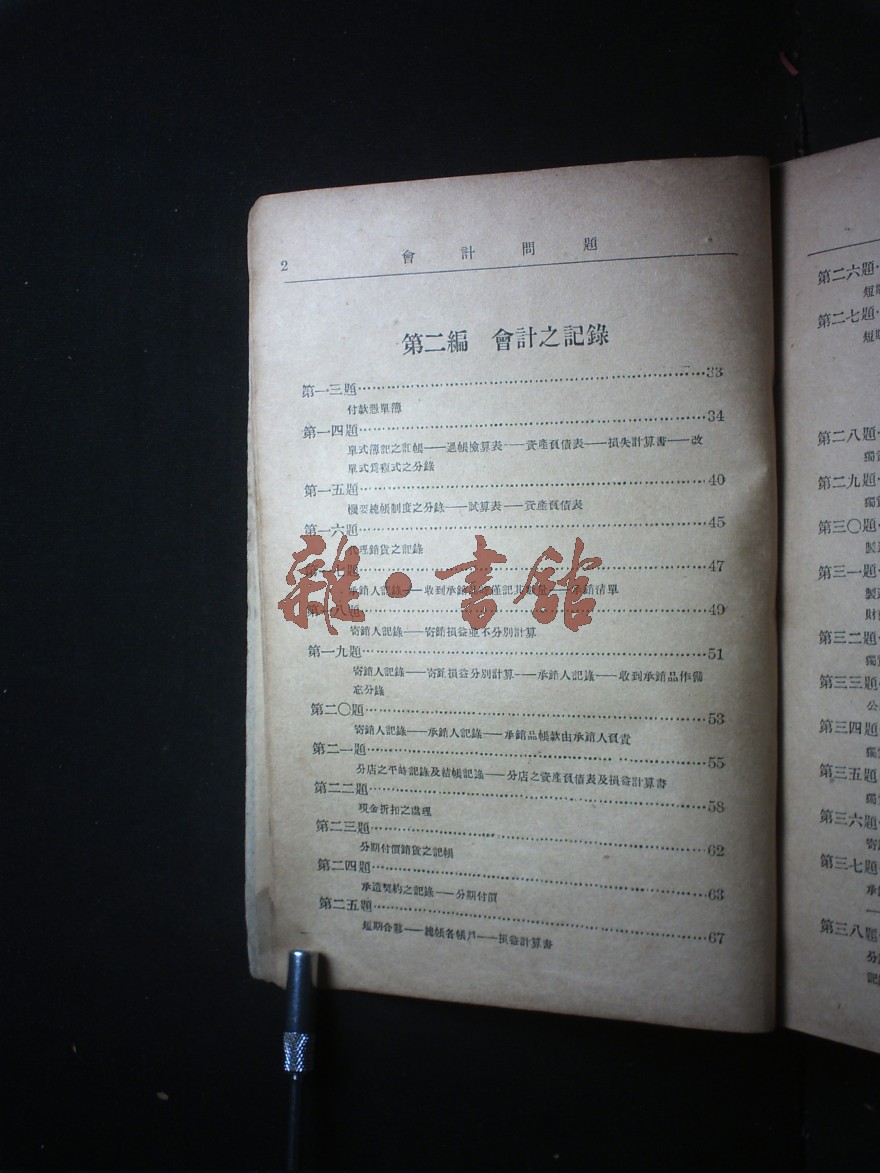 2
會計問題
第二編 會計之記錄
第一三題……33
付款憑單簿
第一四題……34
單式簿記之記帳——過帳檢算表——資產負債表——損失計算書——改
單式爲複式之分錄
第一五題……40
機要總帳制度之分錄——試算表——資產負債表
第一六題……45
代理銷貨之記錄
第一七題……47
承銷人記錄——收到承銷品時僅記其數量——承銷清單
第一八題……49
寄銷人記錄——寄銷損益並不分別計算
第一九題……51
寄銷人記錄——寄銷損益分別計算——承銷人記錄——收到承銷品作備
忘分錄
第二〇題……53
寄銷人記錄——承銷人記錄——承銷品帳款由承銷人負責
第二一題……55
分店之平時記錄及結帳記錄——分店之資產負債表及損益計算書
第二二題……58
現金折扣之處理
第二三題……62
分期付價銷貨之記帳
第二四題……63
承造契約之記錄——分期付價
第二五題……67
短期合夥——總帳各帳戶——損益計算書
雜·書館
第二六題
短期
第二七題
短期
第二八題
獨資
第二九題
獨資
第三〇題
製造
第三一題
製造
財
第三二題
獨資
第三三題
公
第三四題
獨資
第三五題
獨資
第三六題
寄
第三七題
承
第三八題
分
記